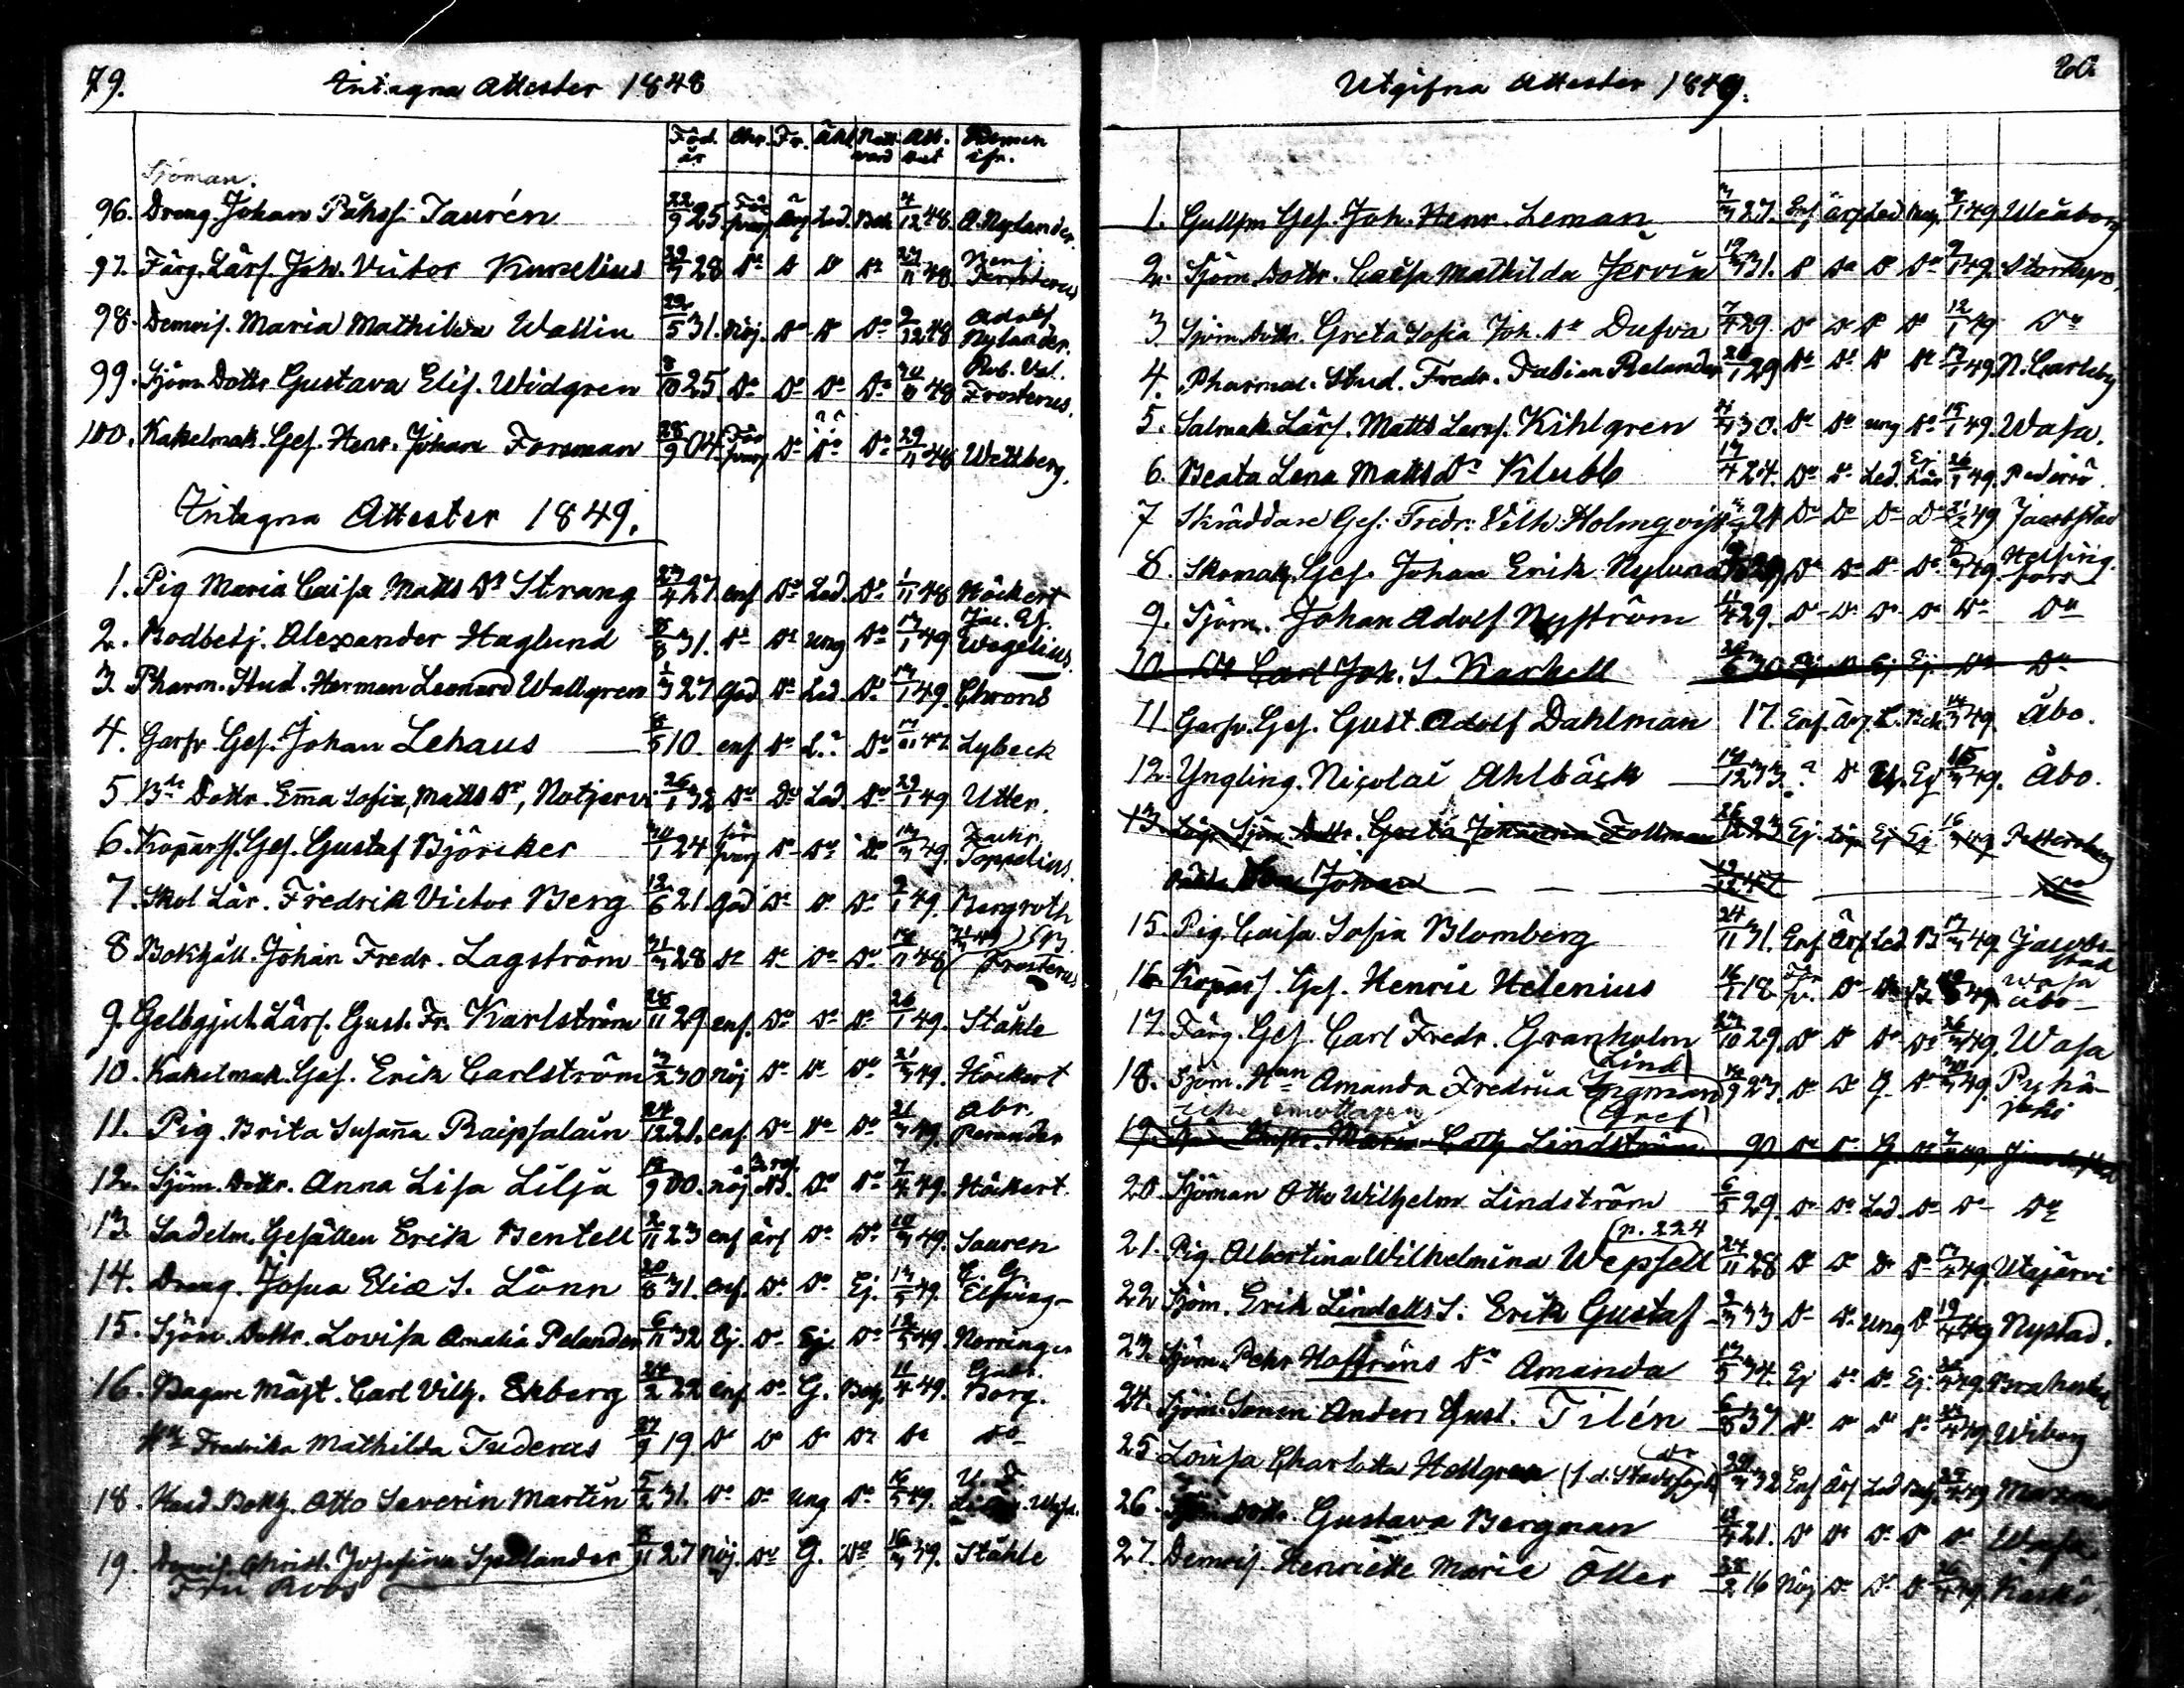 79. Intagna Attester 1848
Föd. år Chr. Fr. Äkt. Natt vard Att. dat
Sjöman.
96. Dreng Johan Påhls S. Taurén 22/9 25. För svarl Ärl Led. Beh 4/12 48. A. Nylander.
97. Färg. Lärl. Joh. Victor Kurelius 29/7 28 Do D D Do 27/11 48.
98. Demois. Maria Mathilda Wallin 29/5 31. Nöj. Do Do Do 9/12 48 Adolf Nylander.
99. Sjöm. Dottr Gustava Elis. Widgren 8/10 25. Do Do Do Do 48 Rob. Val. Frosterus.
100. Kakelmak. Ges. Henr. Johan Forsman 28/9 04. För svarl Do Do Do 29/11 48 Wettberg.
Intagna Attester 1849.
1. Pig Maria Caisa Matts Dr Strang 27/4 27. enf Do Led. Do 1/11 48 Höckert
2. Bodbetj. Alexander Haglund 8/8 31. Do Do ung Do 17/1 49 Wegelius.
3. Pharm. Stud. Herman Leonard Wallgren 1/3 27 God Do Led. Do 17/1 49. Chrons
4. Garfv. Ges. Johan Lehaus 8/5 10. enf Do L. Do 47. Lybeck
5. Bde Dottr. Emma Sofia, Matts Dr, 26/1 32 Do Do Led. Do 29/1 49. Utter.
6. Kopparsl. Ges. Gustaf Björcker 24 för svarl Do Do Do 49. Zachr. Toppelius.
7. Skol Lär. Fredrik Victor Berg 12/6 21. God Do Do Do 9/1 49. Bergroth
8 Bokhåll. Johan Fredr. Lagström 31/3 28 Do Do Do Do 48 Frosterus
9. Gelbgjut. Lärl. Gust. Fr. Karlström 28/11 29 enf. Do Do Do 26/1 49. Ståhle
10. Kakelmak. Ges. Erik Carlström 30 nöj Do Do Do 21/3 49. Höckert
11. Pig. Brita Susanna Raipsalain 24/12 21. enf. Do Do Do 21/3 49. Abr. Perander
12. Sjöm. Dottr. Anna Lisa Lilja 00. nöj Do Do 7/4 49. Höckert.
13. Sadelm. Gesällen Erik Bentell 2/11 23 enf ärl Do Do 10/3 49. Sauren
14. Dreng. Josua Eliæ S. Lönn 20/8 31. enf. Do Do Ej. 49. Elfving
15. Sjöm. Dottr. Lovisa Amalia Pelander 6/11 32 Ej. Do Ej. Do 12/5 49.
16. Bagare Mäst. Carl Vilh. Ekberg 24/2 22 enf Do G. Beh. 11/4 49. Gabr. Borg.
Hu Fredrika Mathilda Tuderus 27/9 19. Do Do Do Do Do Do
18. Hand. Bokh. Otto Severin Martin 5/2 31. Do Do ung Do 16/5 49.
19. Demois. Christ. Josefina Spolander 8/11 27 Nöj. Do G. Do 16/3 49. Ståhle
Fru Roos
Utgifna Attester 1849. 80.
1. Gullsm Ges. Joh. Henr. Leman 27. Enf ärl Led 49. Uleåborg
2. Sjöm. Dottr. Caisa Mathilda Jervin 31. D Do D Do 9/1 49. Storkyro.
3 Sjöm. Dottr. Greta Sofia Joh. Dr Dufva 7/4 29. Do Do D D 12/1 49 Do
4. Pharmac. Stud. Fredr. Fabian Relander 29 Do Do D Do 17/1 49. N. Carleby
5. Salmak. Lärl. Matts Larss. Kihlgren 30. Do Do ung Do 49. Wasa.
6. Beata Lena Matts Dr Klubb 17/4 24. Do Do Led. Ej Lär 26/1 49. Pedersö.
7 Skräddare Ges. Fredr. Vilh. Holmqvist 21 Do Do Do Do 49 Jacobstad
8. Skomak. Ges. Johan Erik Nylund 29. Do Do Do Do 49. Helsing fors
9. Sjöm. Johan Adolf Nyström 11/4 29. Do Do Do Do Do Do
10 Do Carl Joh. S. Karhell 30 Ej D Ej Ej. Do Do
11. Garfv. Ges. Gust. Adolf Dahlman 17. Enf. Ärl. L. Beh. 49. Åbo.
12. Yngling. Nicolai Ahlbäck 33. ? D Ej 49. Åbo.
13. Sjöm. Dottr. Greta Johanna Follman 23. Ej Ej Ej 16/3 49 Petersburg
Johan 47
15. Pig. Caisa Sofia Blomberg 24/11 31. Enf Ärl Led. B 49. Jacobs stad
16. Kopparsl. Ges. Henric Helenius 16/1 18. Do 49. Wasa Åbo
17. Färg. Ges. Carl Fredr. Granholm 27/10 29. Do D Do Do 26/3 49. Wasa
18. Sjöm. Hun Amanda Fredrica Ingman (Lind 23. Do Do G. Do 49. Pyhä joki
icke emottagen
19. Maria Lindström 9. Do D G. Do 49.
20. Sjöman Otto Wilhelm Lindström 6/5 29. Do Do Led. Do Do Do
21. Pig. Albertina Wilhelmina Wepsell (p. 224 24/11 28 D D Do D 49. Utajärvi
22 Sjöm. Erik Lindells S. Erik Gustaf 33 D Do ung D 19/4 49 Nystad.
23. Sjöm. Pehr Hoffréns Dr Amanda 17/5 34. Ej Do Do Ej. 49. Brahestad
24. Sjöm. Sonen Anders Gust. Tilén 6/8 37. D D D D 49. Wiborg
25. Lovisa Charlotta Hellgren 32 Enf Ärl Led 49
26. Gustava Bergman 21. D Do Do D D Wasa.
27. Demois. Henriette Marie Öller 28/2 16 Nöj Do D D 49. Kaskö.